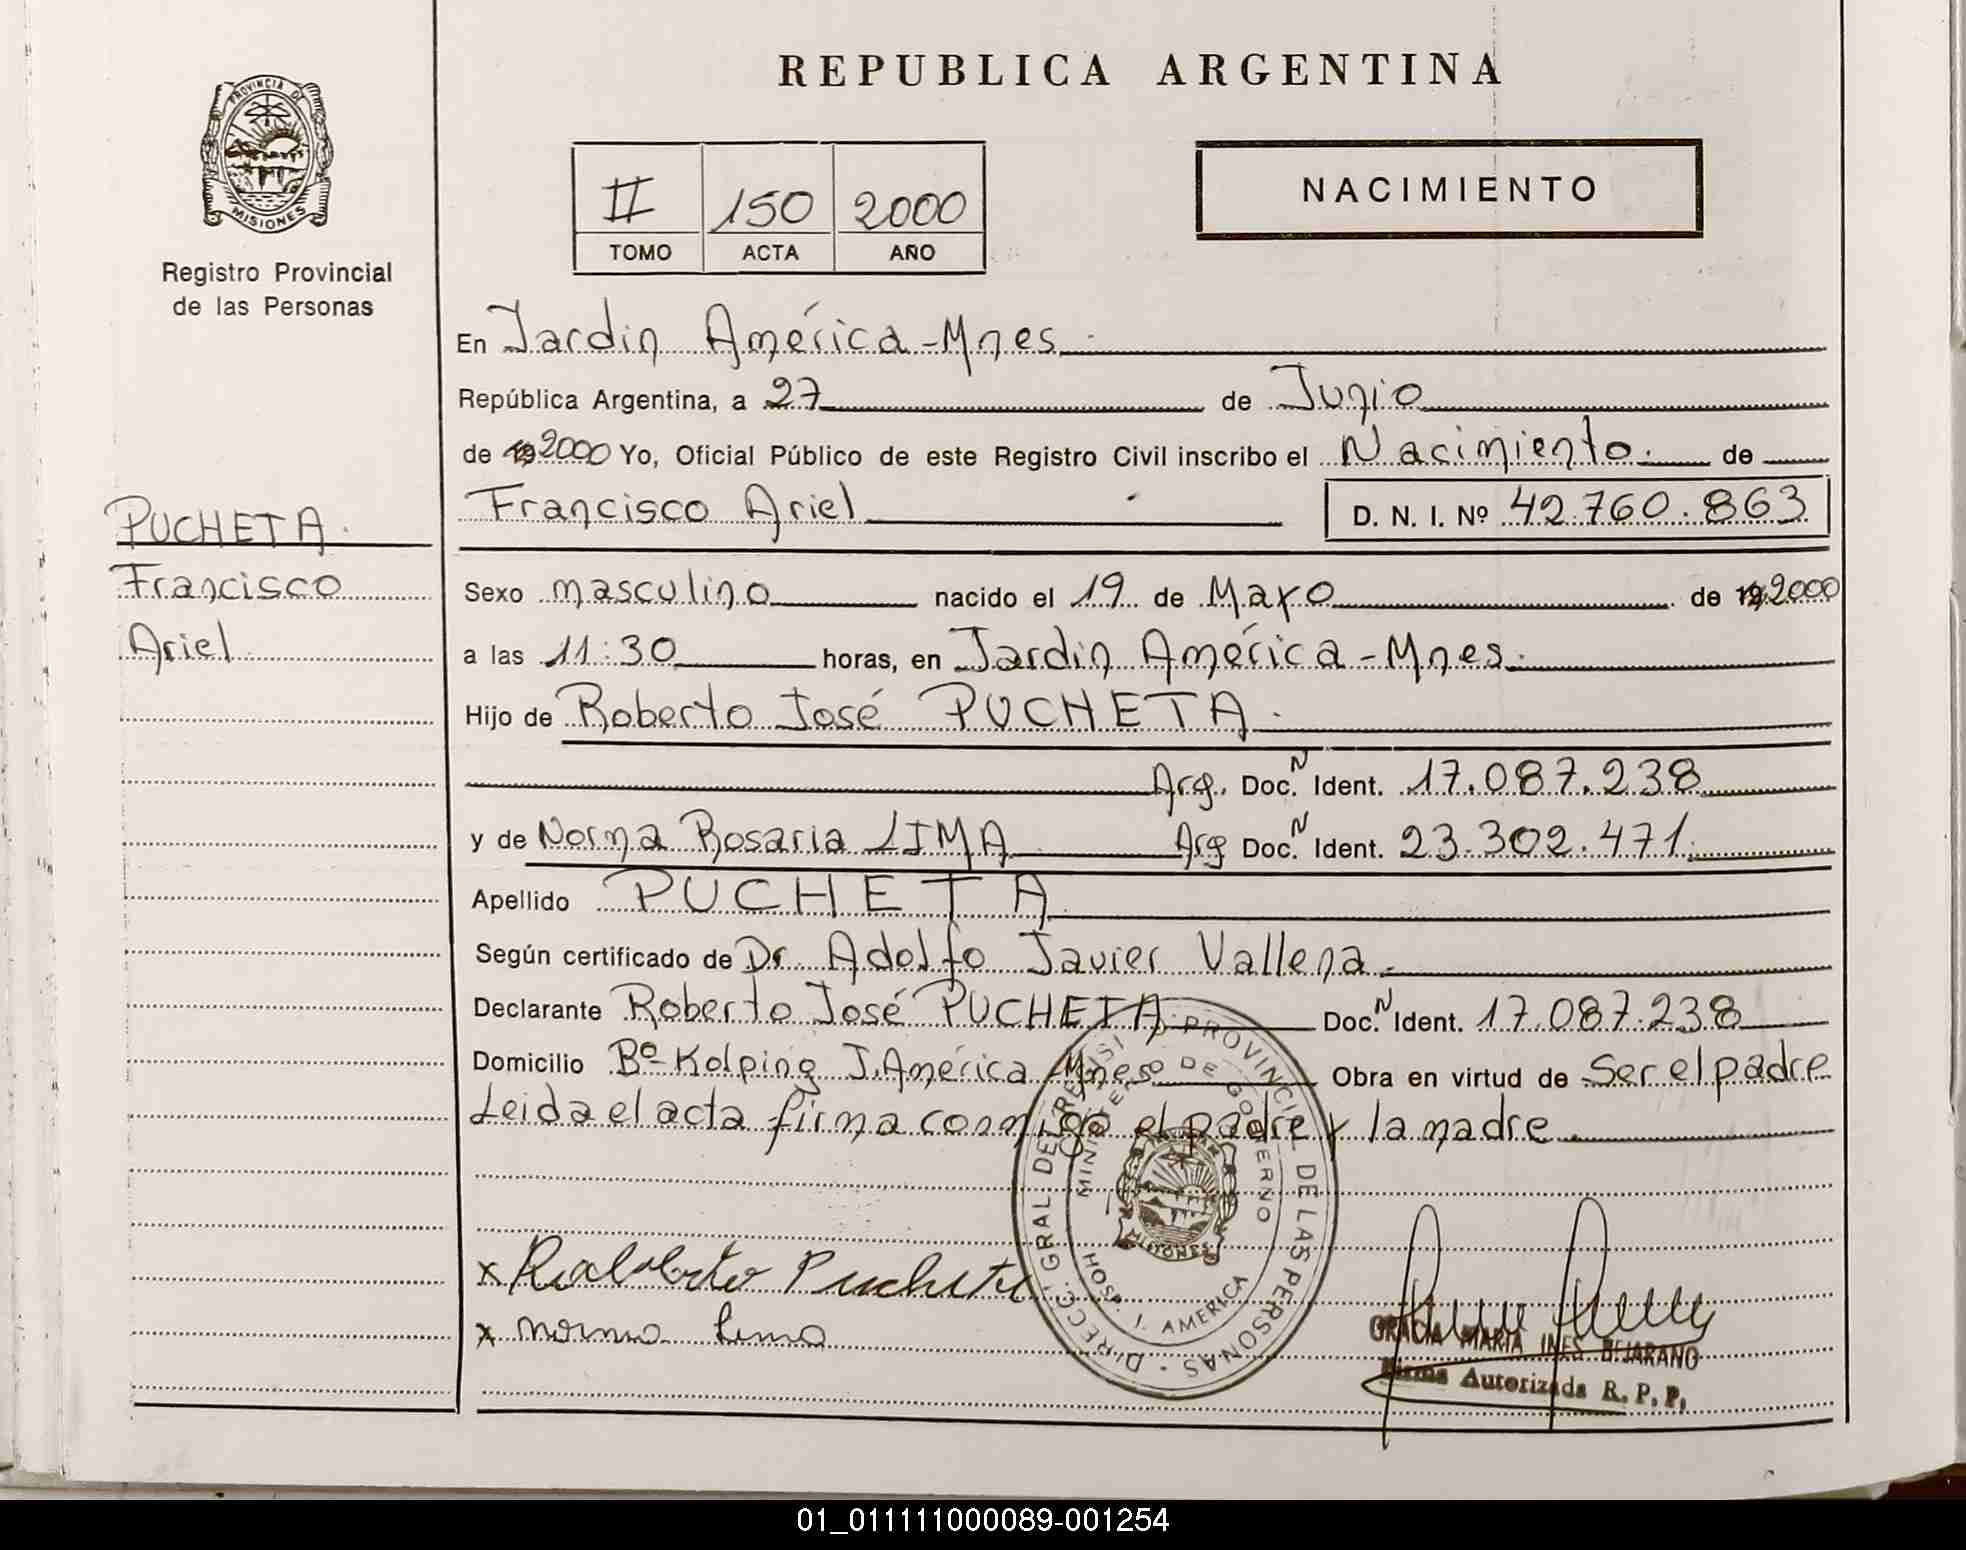 REPUBLICA ARGENTINA
PROVINCIA DE
MISIONES
Registro Provincial
de las Personas
II 150 2000
TOMO ACTA AÑO
NACIMIENTO
En Jardin América - Mnes.
República Argentina, a 27 de Junio
de 19 2000 Yo, Oficial Público de este Registro Civil inscribo el Nacimiento. de
Francisco Ariel D. N. I. Nº 42.760.863
PUCHETA.
Francisco
Ariel
Sexo masculino nacido el 19 de Mayo de 19 2000
a las 11:30 horas, en Jardin América - Mnes.
Hijo de Roberto José PUCHETA.
Arg. Doc. N Ident. 17.087.238
y de Norma Rosaria LIMA Arg Doc. N Ident. 23.302.471.
Apellido PUCHETA
Según certificado de Dr. Adolfo Javier Vallena.
Declarante Roberto José PUCHETA Doc. N Ident. 17.087.238
Domicilio Bº Kolping J. América Mnes Obra en virtud de Ser el padre
Leida el acta firma conmigo el padre y la madre.
DIRECC. GRAL DEL REGIST PROVINCIAL DE LAS PERSONAS
MINISTERIO DE GOBIERNO
MISIONES
HOSP. J. AMERICA
x Roberto Pucheta
x norma Lima
GRACIA MARIA INES BEJARANO
Firma Autorizada R. P. P.
01_011111000089-001254